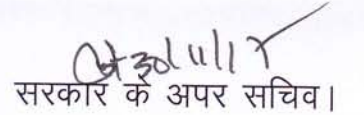 30/11/17
सरकार के अपर सचिव।